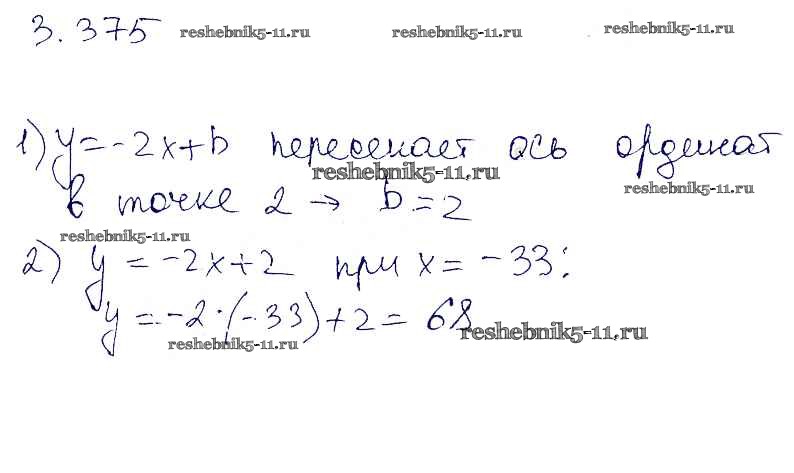 3.375 reshebnik5-11.ru reshebnik5-11.ru reshebnik5-11.ru
1) y = -2x + b пересекает ось ординат
reshebnik5-11.ru
в точке 2 → b = 2 reshebnik5-11.ru
reshebnik5-11.ru
2) y = -2x + 2 при x = -33:
y = -2 · (-33) + 2 = 68 reshebnik5-11.ru
reshebnik5-11.ru